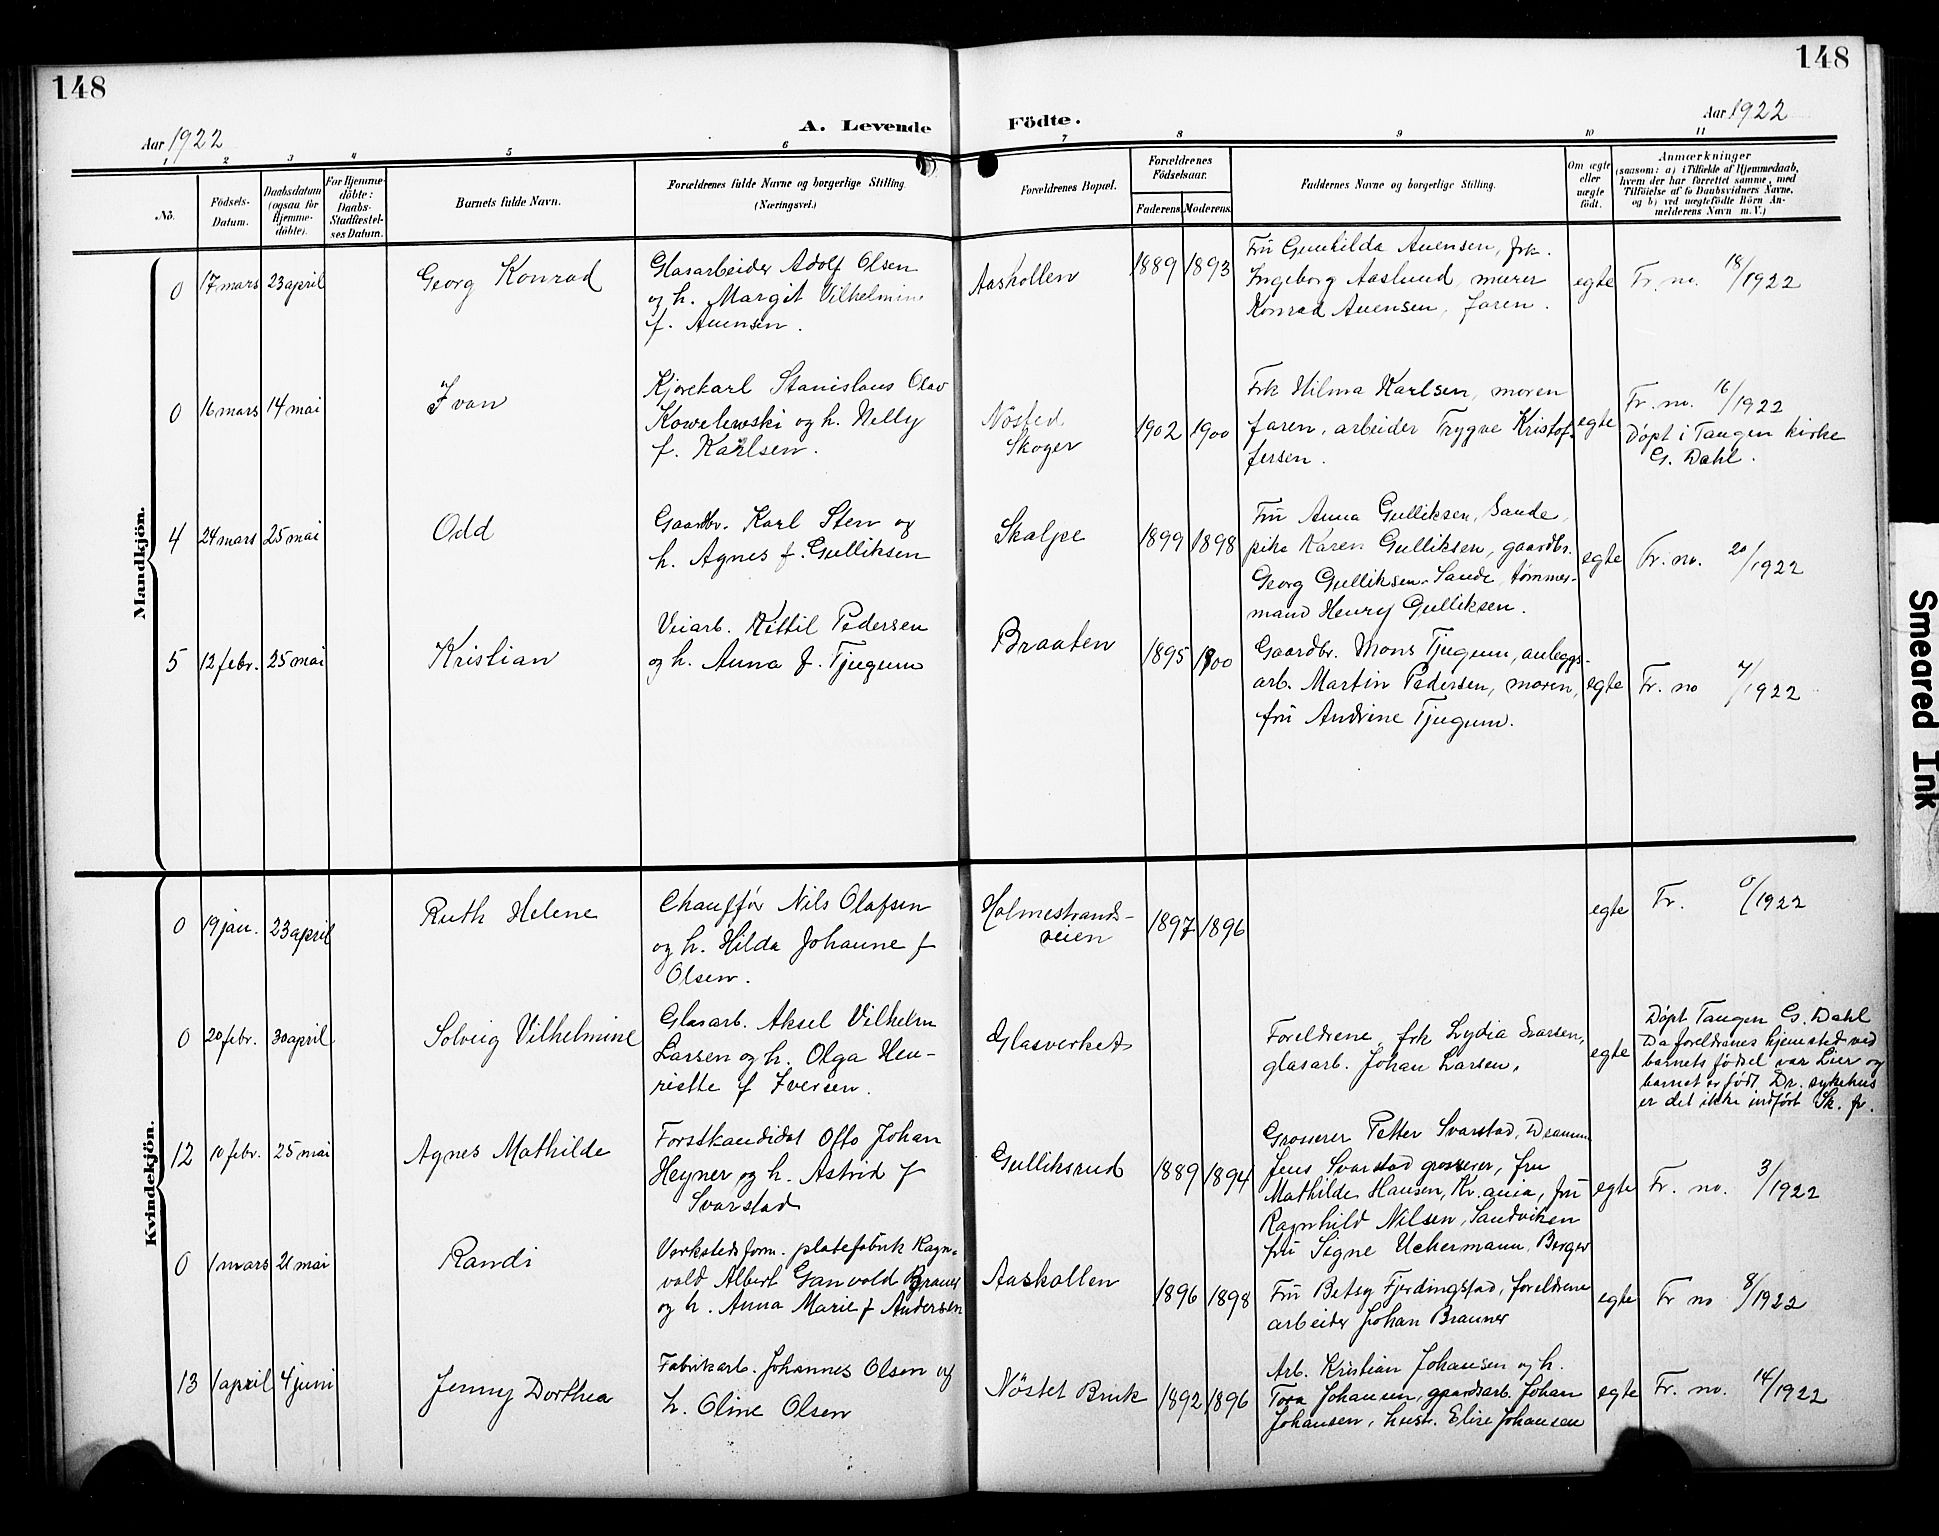 148
148
Aar 1922
A. Levende
Födte.
Aar 1922
1 2 3 4 5 6 7 8 9 10 11
No.
Födsels-
Datum.
Daabsdatum
(ogsaa for
Hjemme-
döbte).
For Hjemme-
döbte:
Daabs-
Stadfæstel-
ses Datum.
Barnets fulde Navn.
Forældrenes fulde Navne og borgerlige Stilling.
(Næringsvei.)
Forældrenes Bopæl.
Forældrenes
Födselsaar.
Faderens. Moderens.
Faddernes Navne og borgerlige Stilling.
Om ægte
eller
uægte
födt.
Anmærkninger
(saasom: a) i Tilfælde af Hjemmedaab,
hvem der har forrettet samme, med
Tilföielse af to Daabsvidners Navne,
og b) ved uægtefödte Börn An-
melderens Navn m. V.)
Mandkjön.
0 17 mars 23 april
Georg Konrad
Glasarbeider Adolf Olsen
og h. Margit Vilhelmine
f. Auensen.
Aaskollen
1889 1893
Fru Gunhilda Auensen, frk.
Ingeborg Aaslund, murer
Konrad Auensen, faren.
egte
Fr. no. 18/1922
0 16 mars 14 mai
Ivan
Kjørekarl Stanislaus Olav
Kowelewski og h. Nelly
f. Karlsen.
Nøsted
Skoger
1902 1900
Frk Hilma Karlsen, moren
faren, arbeider Trygve Kristof-
fersen.
egte
Fr. no. 16/1922
Døpt i Tangen kirke
G. Dahl.
4 24 mars 25 mai
Odd
Gaardbr. Karl Sten og
h. Agnes f. Gulliksen
Skalpe
1899 1898
Fru Anna Gulliksen, Sande,
pike Karen Gulliksen, gaardbr.
Georg Gulliksen Sande, tømmer-
mand Henry Gulliksen.
egte
Fr. no. 20/1922
5 12 febr. 25 mai
Kristian
Veiarb. Kittil Pedersen
og h. Anna f. Tjugum
Braaten
1895 1900
Gaardbr. Mons Tjugum, anleggs-
arb. Martin Pedersen, moren,
fru Andrine Tjugum.
egte
Fr. no 7/1922
Kvindekjön.
0 19 jan. 23 april
Ruth Helene
Chauffør Nils Olafsen
og h. Hilda Johanne f
Olsen.
Holmestrands-
veien
1897 1896
egte
Fr. 0/1922
0 20 febr. 30 april
Solveig Vilhelmine
Glasarb. Aksel Vilhelm
Larsen og h. Olga Hen-
riette f Iversen.
Glasverket
Foreldrene, frk Lydia Larsen,
glasarb. Johan Larsen,
egte
Døpt Tangen G. Dahl
Da foreldrenes hjemsted ved
barnets fødsel var Lier og
barnet er født Dr. sykehus
er det ikke indført Sk. fr.
12 10 febr. 25 mai
Agnes Mathilde
Forstkandidat Otto Johan
Heyner og h. Astrid f
Svarstad
Gulliksrud
1889 1894
Grosserer Petter Svarstad, Dramm
Jens Svarstad grosserer, fru
Mathilde Hansen, Kr.ania, fru
Ragnhild Nilsen, Sandviken
fru Signe Uchermann, Berger
egte
Fr. no. 3/1922
0 1 mars 21 mai
Randi
Verkstedsform. platefabrik Ragn-
vald Albert Ganvald Brauner
og h. Anna Marie f Andersen
Aaskollen
1896 1898
Fru Betsy Fjerdingstad, foreldrene
arbeider Johan Brauner
egte
Fr no 8/1922
13 1 april 4 juni
Jenny Dorthea
Fabrikarb. Johannes Olsen og
h. Oline Olsen
Nöstet Bruk
1892 1896
Arb. Kristian Johansen og h.
Tora Johansen, gaardsarb. Johan
Johansen, hustr. Elise Johansen
egte
Fr. no. 14/1922
Smeared Ink